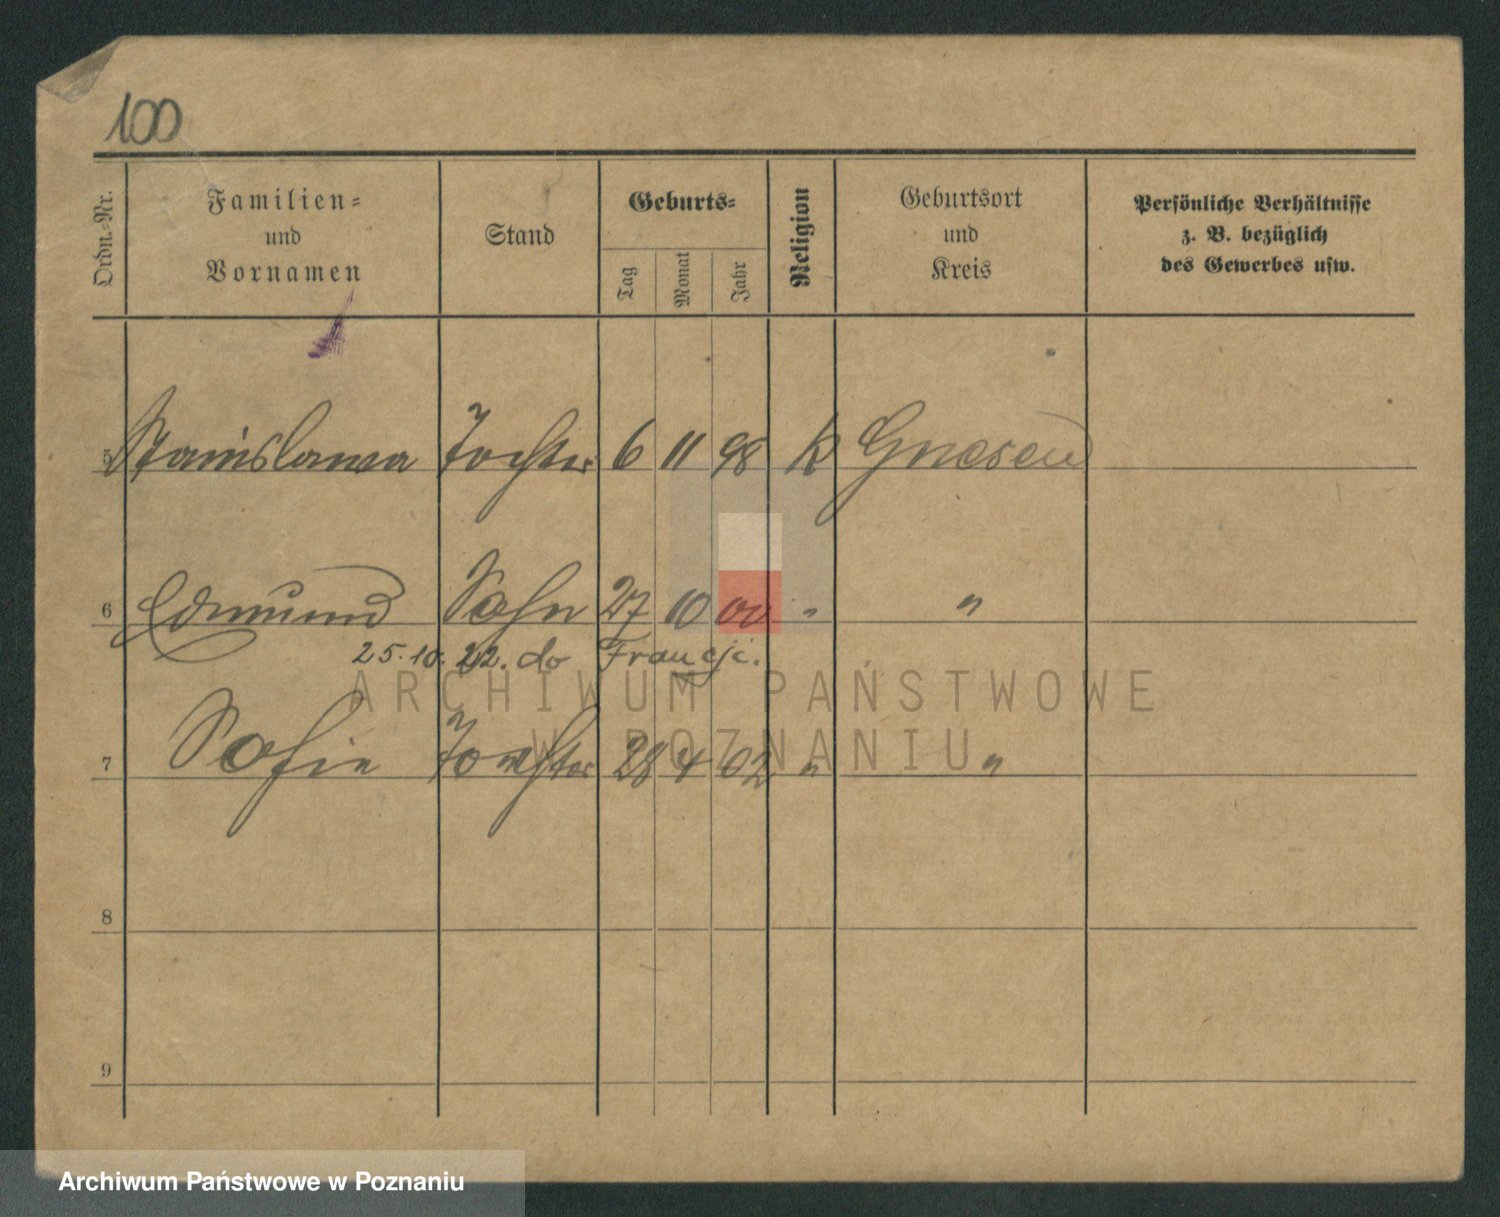 100
Ordn.-Nr.
Familien-
und
Vornamen
Stand
Geburts-
Tag
Monat
Jahr
Religion
Geburtsort
und
Kreis
Persönliche Verhältnisse
z. B. bezüglich
des Gewerbes usw.
5 Stanislawa Tochter 6 11 98 K Gnesen
6 Edmund Sohn 27 10 00 " "
25.10.22. do Francji.
7 Sofie Tochter 28 4 02 " "
8
9
ARCHIWUM PAŃSTWOWE
W POZNANIU
Archiwum Państwowe w Poznaniu